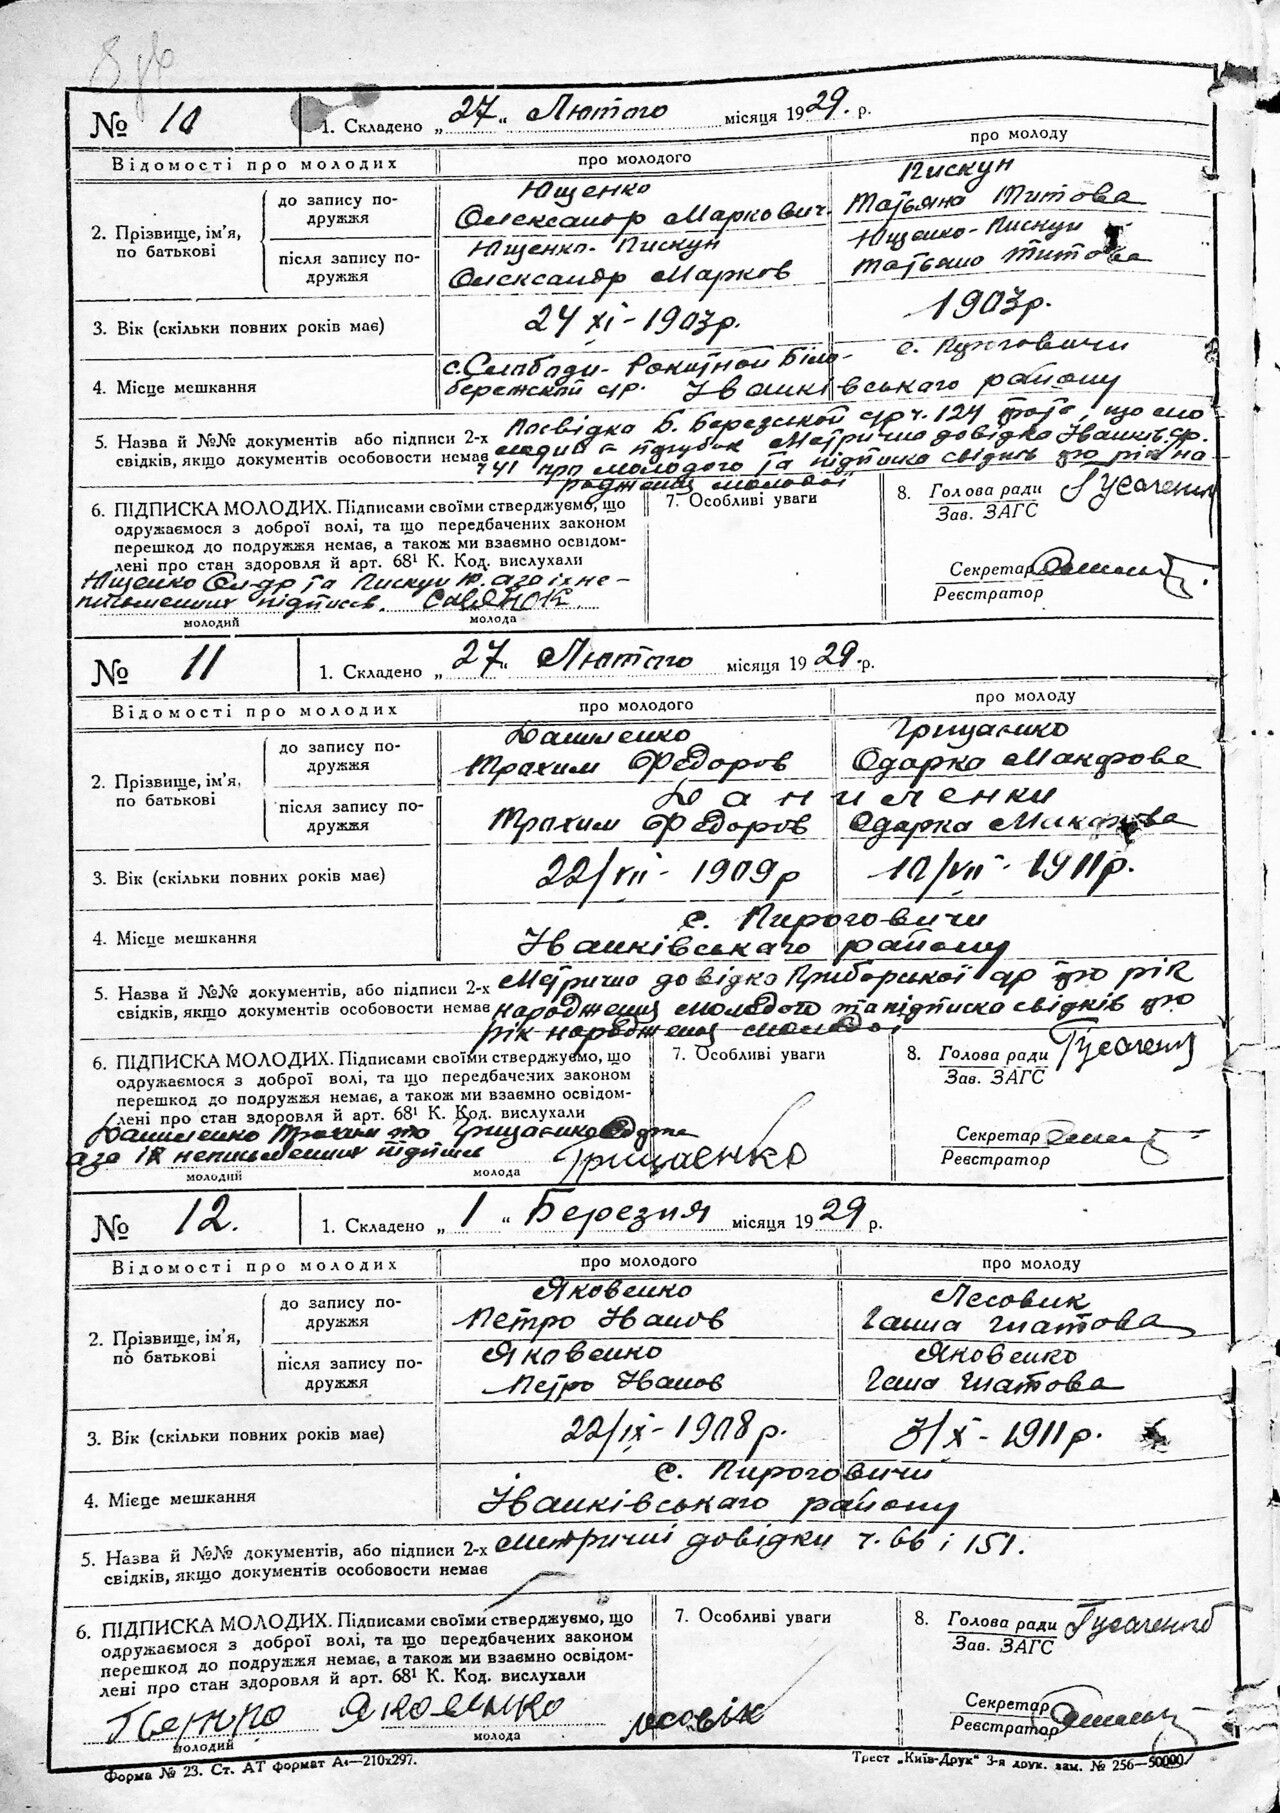 № 10
1. Складено „27“ Лютого місяця 1929. р.
Відомості про молодих
про молодого
про молоду
2. Прізвище, ім'я, по батькові
до запису подружжя
Ющенко
Олександр Маркович
Пискун
Татьяна Титова
після запису подружжя
Ющенко-Пискун
Олександр Марков
Ющенко-Пискун
Татьяна Титова
3. Вік (скільки повних років має)
24 XI - 1903р.
1903р.
4. Місце мешкання
с. Слободи-
Біло-
бережской с/р.
с.
Іванківського району
5. Назва й №№ документів або підписи 2-х
свідків, якщо документів особовости немає
Посвідка Б. Березської с/р ч. 124 що мо
Метрична довідка
про молодого та підписка свідків про рік на
родження молодої
6. ПІДПИСКА МОЛОДИХ. Підписами своїми стверджуємо, що
одружаємося з доброї волі, та що передбачених законом
перешкод до подружжя немає, а також ми взаємно освідом-
лені про стан здоровля й арт. 68¹ К. Код. вислухали
Ющенко Ол-др та Пискун Т. а за їх не-
письменних підписав.
молодий
молода
7. Особливі уваги
8. Голова ради
Зав. ЗАГС
Секретар
Реєстратор
№ 11
1. Складено „27“ Лютого місяця 1929. р.
Відомості про молодих
про молодого
про молоду
2. Прізвище, ім'я, по батькові
до запису подружжя
Даниленко
Трохим Федоров
Грицаенко
Одарка Макарова
після запису подружжя
Даниленки
Трохим Федоров
Одарка Макарова
3. Вік (скільки повних років має)
22/VII - 1909р
10/VII - 1911р.
4. Місце мешкання
с. Пироговичи
Іванківського району
5. Назва й №№ документів, або підписи 2-х
свідків, якщо документів особовости немає
Метрична довідка Приборської с/р про рік
народження молодого та підписка свідків про
рік народження молодої
6. ПІДПИСКА МОЛОДИХ. Підписами своїми стверджуємо, що
одружаємося з доброї волі, та що передбачених законом
перешкод до подружжя немає, а також ми взаємно освідом-
лені про стан здоровля й арт. 68¹ К. Код. вислухали
Даниленко Трохим та Грицаенко Одарка
а за їх неписьменних підпись
Грицаенко
молодий
молода
7. Особливі уваги
8. Голова ради
Зав. ЗАГС
Секретар
Реєстратор
№ 12.
1. Складено „1“ Березня місяця 1929 р.
Відомості про молодих
про молодого
про молоду
2. Прізвище, ім'я, по батькові
до запису подружжя
Яковенко
Петро Іванов
Лесовик
Ганна Гнатова
після запису подружжя
Яковенко
Петро Іванов
Яковенко
Гана Гнатова
3. Вік (скільки повних років має)
22/IX - 1908р.
3/X - 1911р.
4. Місце мешкання
с. Пироговичи
Іванківського району
5. Назва й №№ документів, або підписи 2-х
свідків, якщо документів особовости немає
Метричні довідки ч. 66 і 151.
6. ПІДПИСКА МОЛОДИХ. Підписами своїми стверджуємо, що
одружаємося з доброї волі, та що передбачених законом
перешкод до подружжя немає, а також ми взаємно освідом-
лені про стан здоровля й арт. 68¹ К. Код. вислухали
Яковенко
молодий
молода
7. Особливі уваги
8. Голова ради
Зав. ЗАГС
Секретар
Реєстратор
Форма № 23. Ст. АТ формат А₄—210х297.
Трест „Київ-Друк“ 3-я друк. зам. № 256—50000